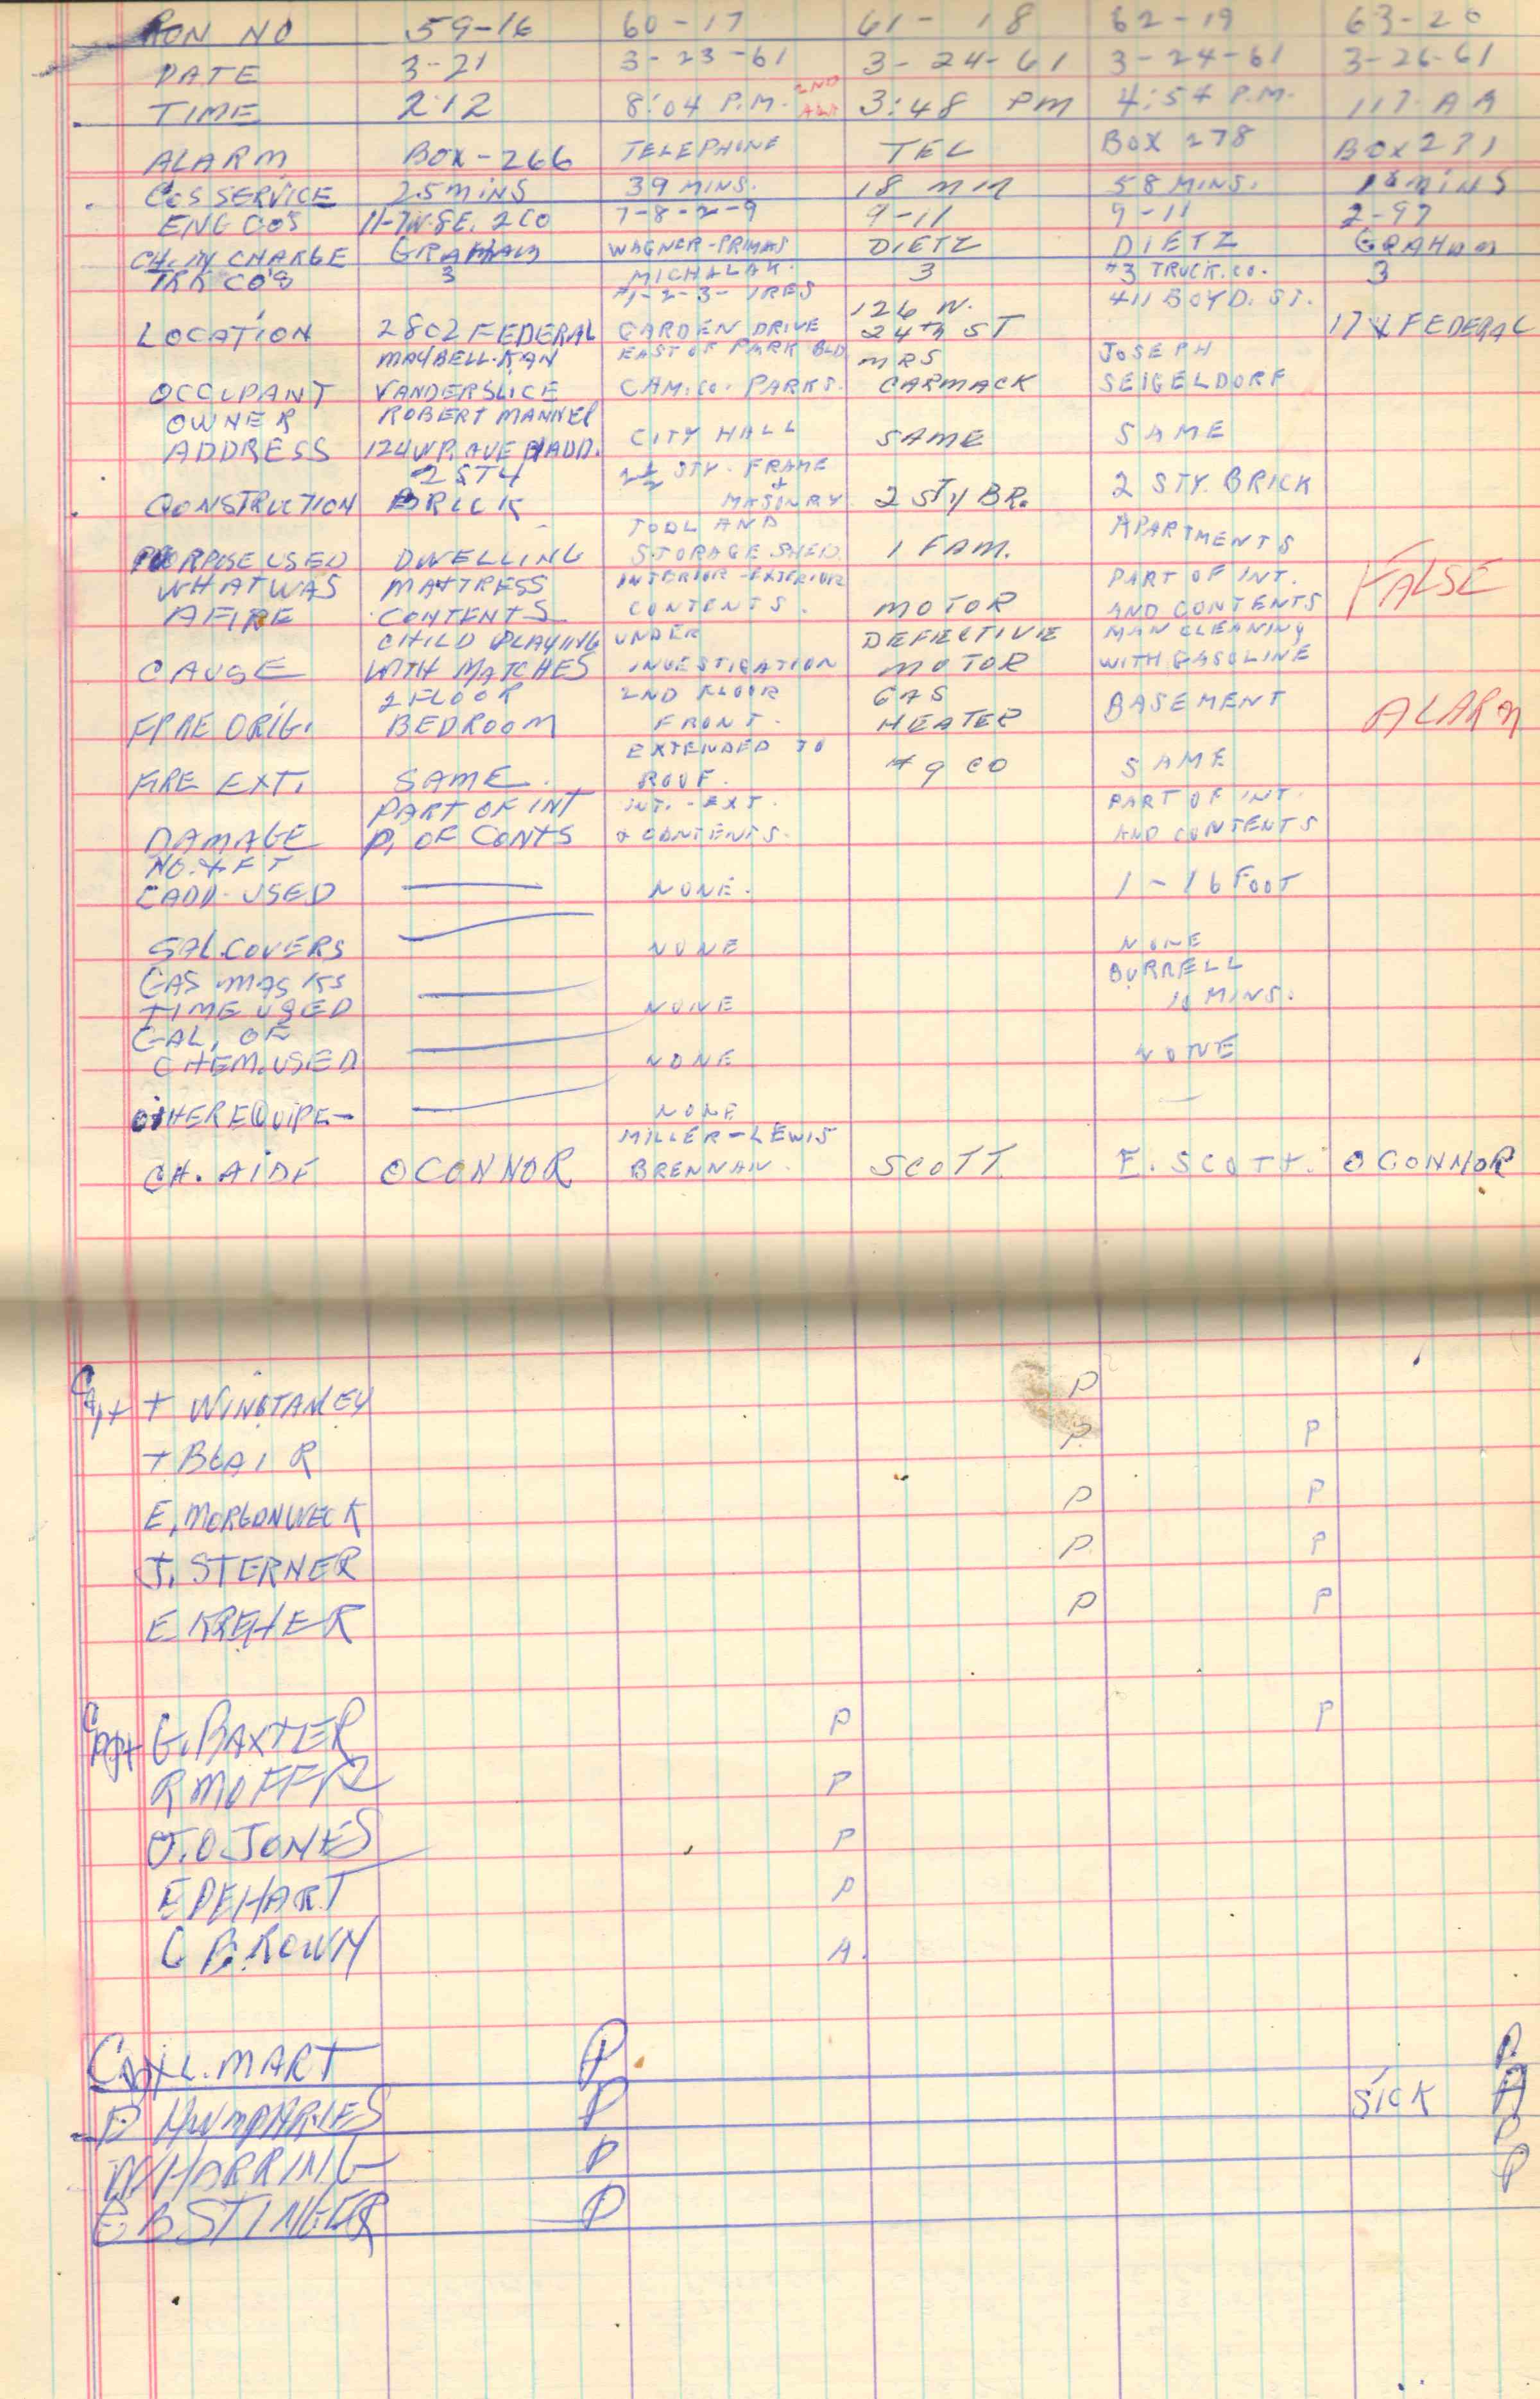 RUN NO 59-16 60-17 61-18 62-19 63-20
DATE 3-21 3-23-61 3-24-61 3-24-61 3-26-61
TIME 2:12 8:04 P.M. 2ND 3:48 PM 4:54 P.M.
ALARM BOX-266 TELEPHONE TEL BOX 278 BOX 231
SERVICE 25 MINS 39 MINS. 18 MIN 58 MINS. MINS
ENG CO'S 7-8-2-9 9-11 9-11
CH. IN CHARGE GRAHAM WAGNER-PRIMAS DIETZ DIETZ GRAHAM
TRK CO'S 3 MICHALAK. 3 #3 TRUCK. CO. 3
#1-2-3- 126 N. 411 BOYD. ST.
LOCATION 2802 FEDERAL GARDEN DRIVE 24TH ST FEDERAL
EAST OF PARK BLD MRS JOSEPH
OCCUPANT VANDERSLICE CAM. CO. PARKS. CARMACK SEIGELDORF
OWNER ROBERT
ADDRESS CITY HALL SAME SAME
2 STY 2½ STY. FRAME
CONSTRUCTION BRICK + MASONRY 2 STY BR. 2 STY. BRICK
TOOL AND APARTMENTS
PURPOSE USED DWELLING STORAGE SHED 1 FAM.
WHAT WAS MATTRESS INTERIOR-EXTERIOR PART OF INT. FALSE
AFIRE CONTENTS CONTENTS. MOTOR AND CONTENTS
CHILD PLAYING UNDER DEFECTIVE MAN CLEANING
CAUSE WITH MATCHES INVESTIGATION MOTOR WITH GASOLINE
2 FLOOR 2ND FLOOR GAS
FIRE ORIG. BEDROOM FRONT. HEATER BASEMENT ALARM
EXTENDED TO
FIRE EXT. SAME. ROOF. #9 CO SAME
PART OF INT INT.-EXT. PART OF INT.
DAMAGE P. OF CONTS & CONTENTS. AND CONTENTS
NO. & FT
LADD. USED — NONE. 1-16 FOOT
SAL. COVERS — NONE NONE
GAS MASKS BURRELL
TIME USED — NONE 10 MINS.
GAL. OF
CHEM. USED — NONE NONE
OTHER EQUIPE- — NONE —
MILLER-LEWIS
CH. AIDE OCONNOR BRENNAN. SCOTT E. SCOTT. OCONNOR
CAPT T WINSTANLEY P
T BLAIR P P
E. MORGONWECK P P
J. STERNER P P
E KREHER P P
CAPT G. BAXTER P P
P
J.O JONES P
E DEHART P
C BROWN A.
CAPT L. MART P P
HUMPHRIES P SICK A
W HARRING P P
E B STINGER P P